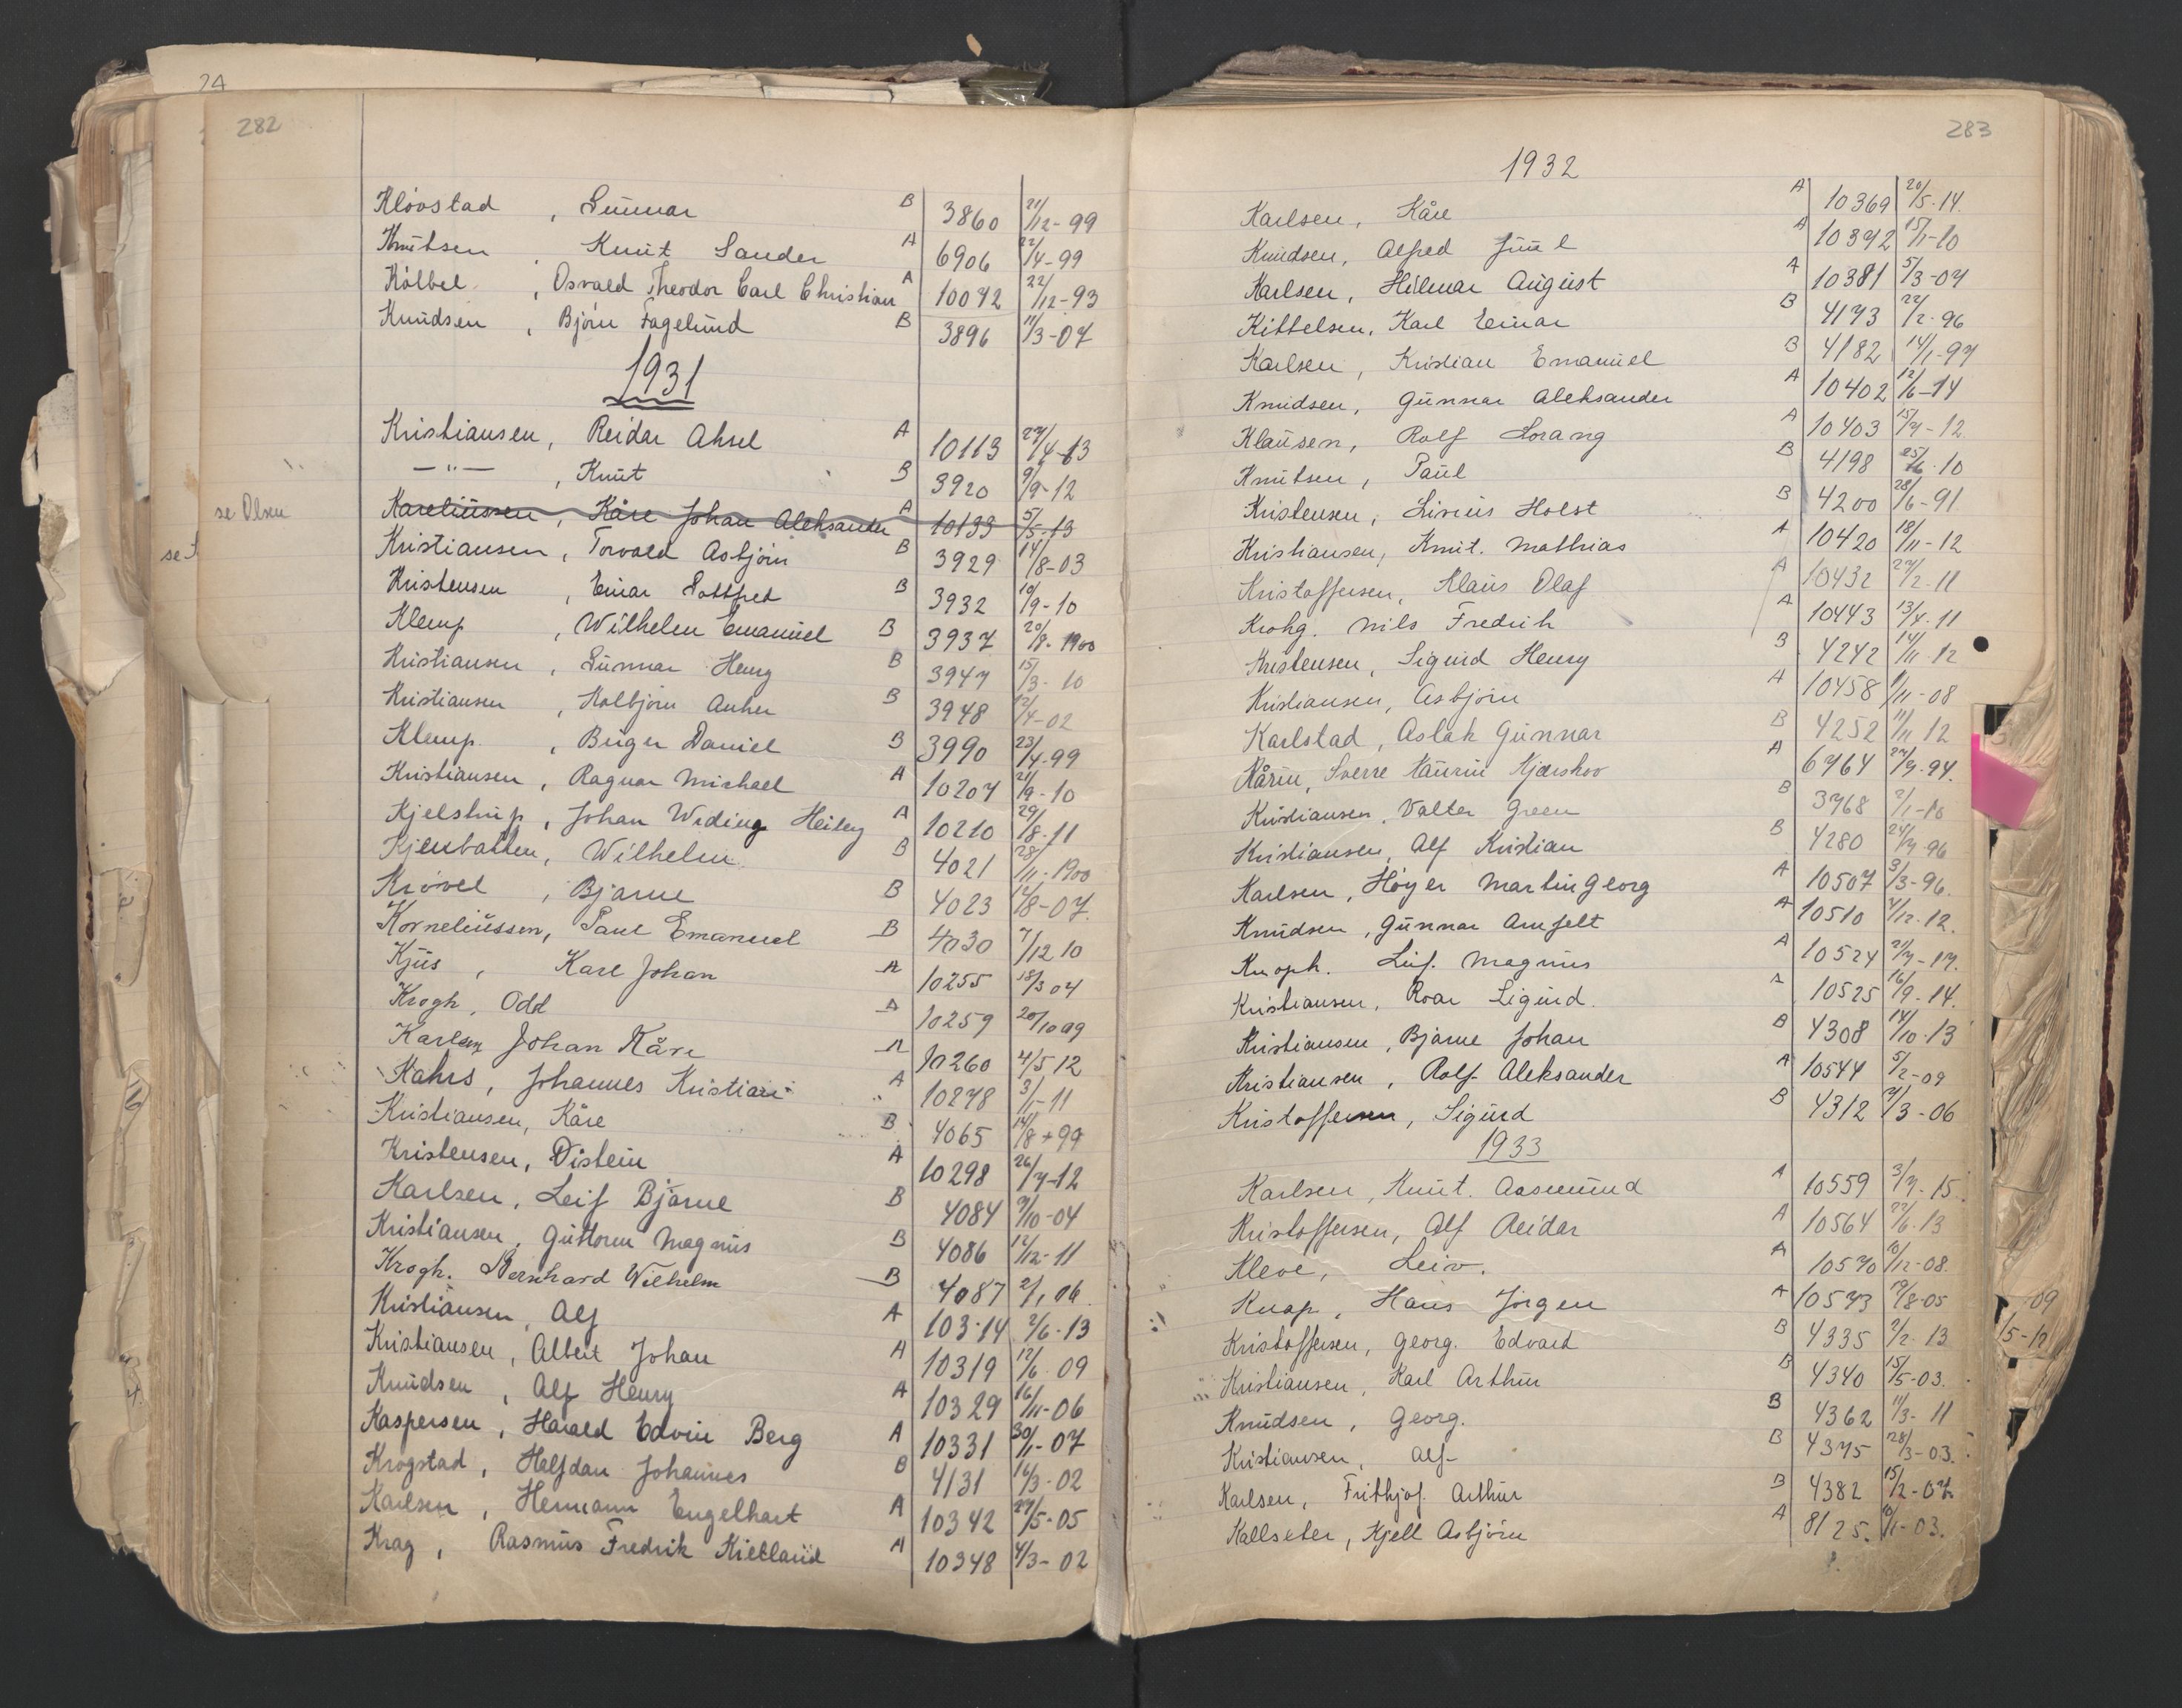 24
282
Klövstad , Gunnar B 3860 21/12-99
Knutsen , Knut Sander A 6906 22/4-99
Kölbel , Osvald Theodor Carl Christian A 10042 22/12-93
Knudsen , Björn Fagelund B 3896 11/3-07
1931
Kristiansen, Reidar Aksel A 10113 27/4-13
—"— , Knut B 3920 9/9-12
se Olsen Kareliussen, Kåre Johan Aleksander A 10133 5/5-13
se
Kristiansen, Torvald Asbjörn B 3929 14/8-03
Kristensen , Einar Gottfred B 3932 19/9-10
Klemp , Wilhelm Emanuel B 3937 20/8-1900
Kristiansen , Gunnar Henry B 3947 15/3-10
Kristiansen , Kolbjörn Anker B 3948 12/4-02
Klemp , Birger Daniel B 3990 23/4-99
Kristiansen, Ragnar Michael A 10207 21/9-10
Kjelstrup, Johan Widing Heiley A 10210 29/8-11
Kjenbakken, Wilhelm B 4021 28/11-1900
Krövel , Bjarne B 4023 12/8-07
Korneliussen, Paul Emanuel B 4030 7/12 10
Kjus , Karl Johan A 10255 18/3 04
Krogh, Odd A 10259 20/10 09
Karlsen Johan Kåre A 10260 4/5 12
Kahrs, Johannes Kristian A 10278 3/5-11
Kristiansen, Kåre B 4065 14/8-99
Kristensen, Öistein A 10298 26/7-12
Karlsen, Leif Bjarne B 4084 9/10-04
Kristiansen, Guttorm Magnus B 4086 12/12-11
Krogh. Bernhard Wilhelm B 4087 2/1 06
Kristiansen, Alf A 10314 2/6-13
Kristiansen, Albert Johan A 10319 12/6 09
Knudsen , Alf Henry A 10329 16/11-06
Kaspersen, Harald Edvin Berg A 10331 30/1-07
Krogstad, Halfdan Johannes B 4131 16/3-02
Karlsen , Hermann Engelhart A 10342 27/5-05
Krag, Rasmus Fredrik Kielland A 10348 4/3-02
283
1932
Karlsen, Kåre A 10369 20/5-14
Knudsen, Alfred Juul A 10372 15/1-10
Karlsen, Hilmar August A 10381 5/3-07
Kittelsen, Karl Einar B 4173 22/2-96
Karlsen, Kristian Emanuel B 4182 14/1-97
Knudsen, Gunnar Aleksander A 10402 12/6-14
Klausen, Rolf Lorang A 10403 15/7-12
Knutsen, Paul B 4198 25/6-10
Kristensen, Sirius Holst B 4200 28/6-91
Kristiansen, Knut. Mathias A 10420 18/11-12
Kristoffersen, Klaus Olaf A 10432 27/2-11
Krohg. Nils Fredrik A 10443 13/4-11
Kristensen, Sigurd Henry B 4242 14/11-12
Kristiansen, Asbjörn A 10458 1/11-08
Karlstad, Aslak Gunnar B 4252 11/11 12
Kårin, Sverre Kaurin Kjærskov A 6764 27/9-94
Kristiansen, Valter Green B 3768 2/1-10
Kristiansen, Alf Kristian B 4280 24/7-96
Karlsen, Höyer Martin Georg A 10507 3/3-96
Knudsen, Gunnar Amfelt A 10510 4/12-12.
Knoph. Leif. Magnus A 10524 21/7-14.
Kristiansen, Roar Sigurd. A 10525 16/9-14.
Kristiansen, Bjarne Johan B 4308 14/10-13
Kristiansen, Rolf Aleksander A 10544 5/2-09
Kristoffersen, Sigurd B 4312 21/3-06
1933
Karlsen, Knut. Aasmund A 10559 3/7-15
Kristoffersen, Alf Reidar A 10564 22/6-13
Kleve, Leiv. A 10570 10/12-08
Knap, Hans Jörgen A 10573 19/8-05
Kristoffersen, Georg. Edvard B 4335 2/2-13
Kristiansen, Karl Arthur B 4340 15/5-03.
Knudsen, Georg. B 4362 11/3-11
Kristiansen, Alf- B 4375 28/3-03.
Karlsen, Frithjof. Arthur B 4382 15/2-07
Kallseter, Kjell Asbjörn A 8125. 10/1-03.
09
/5-12